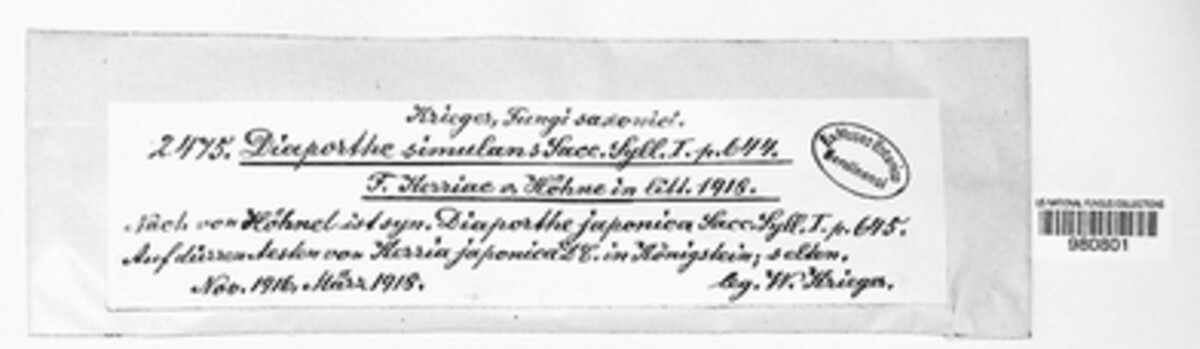 Krieger, Fungi saxonici.
2475. Diaporthe simulans Sacc. Syll. I. p. 644.
F. Kerriae v. Höhne in litt. 1918.
Nach von Höhnel ist syn. Diaporthe japonica Sacc. Syll. I. p. 645.
Auf dürren Aesten von Kerria japonica DC. in Königstein; selten.
Nov. 1916, März 1918. leg. W. Krieger.
Ex Museo Botanico
Berolinensi
US NATIONAL FUNGUS COLLECTIONS
980801